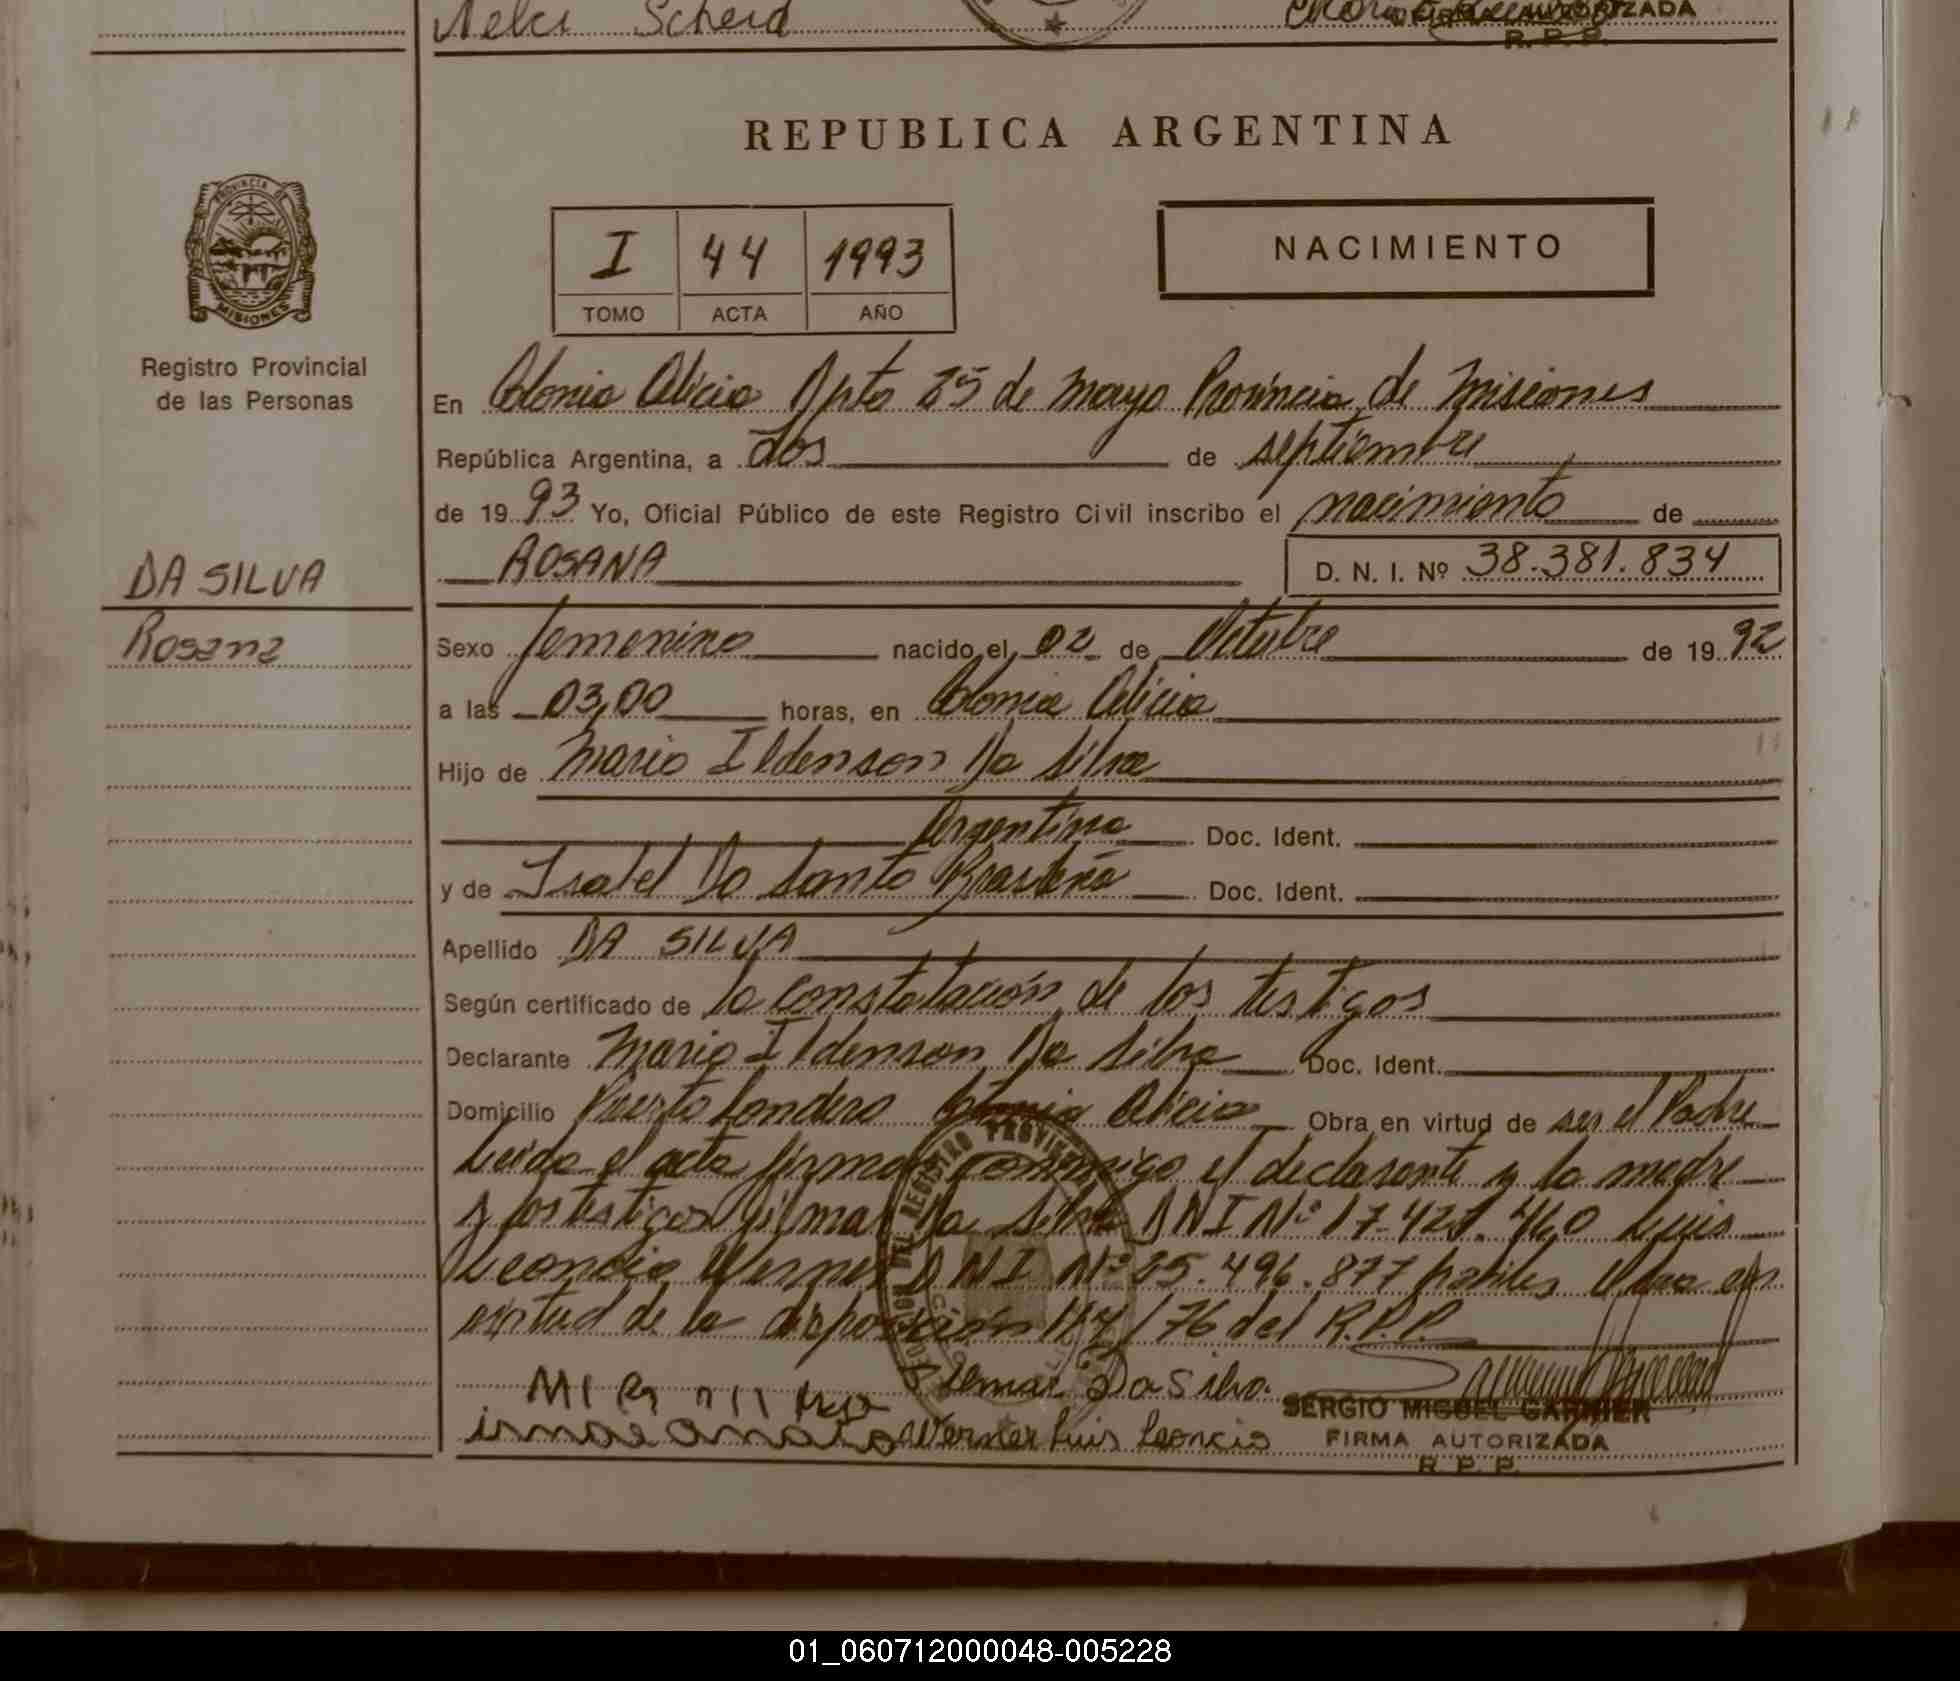 Nelci Scheid
AUTORIZADA
R. P. P.
REPUBLICA ARGENTINA
PROVINCIA DE
MISIONES
I 44 1993
TOMO ACTA AÑO
NACIMIENTO
Registro Provincial
de las Personas
En Colonia Alicia Dpto 25 de Mayo Provincia de Misiones
República Argentina, a dos de septiembre
de 1993 Yo, Oficial Público de este Registro Civil inscribo el nacimiento de
ROSANA D. N. I. Nº 38.381.834
DA SILVA
Rosana
Sexo femenino nacido el 02 de Octubre de 1992
a las 03,00 horas, en Colonia Alicia
Hijo de Mario Ildenson Da Silva
Argentino Doc. Ident.
y de Isabel Do Santo Brasileña Doc. Ident.
Apellido DA SILVA
Según certificado de la constatación de los testigos
Declarante Mario Ildenson Da Silva Doc. Ident.
Domicilio Puerto Londero Colonia Alicia Obra en virtud de ser el Padre
Leida el acta firman conmigo el declarante y la madre
y los testigos Gilmar Da Silva DNI Nº 17.421.460 Luis
Leoncio Werner DNI Nº 25.496.877 habiles Obra en
virtud de la disposición 117/76 del R.P.P.
Da Silva.
Werner Luis Leoncio
SERGIO MIGUEL GARNIER
FIRMA AUTORIZADA
R. P. P.
01_060712000048-005228